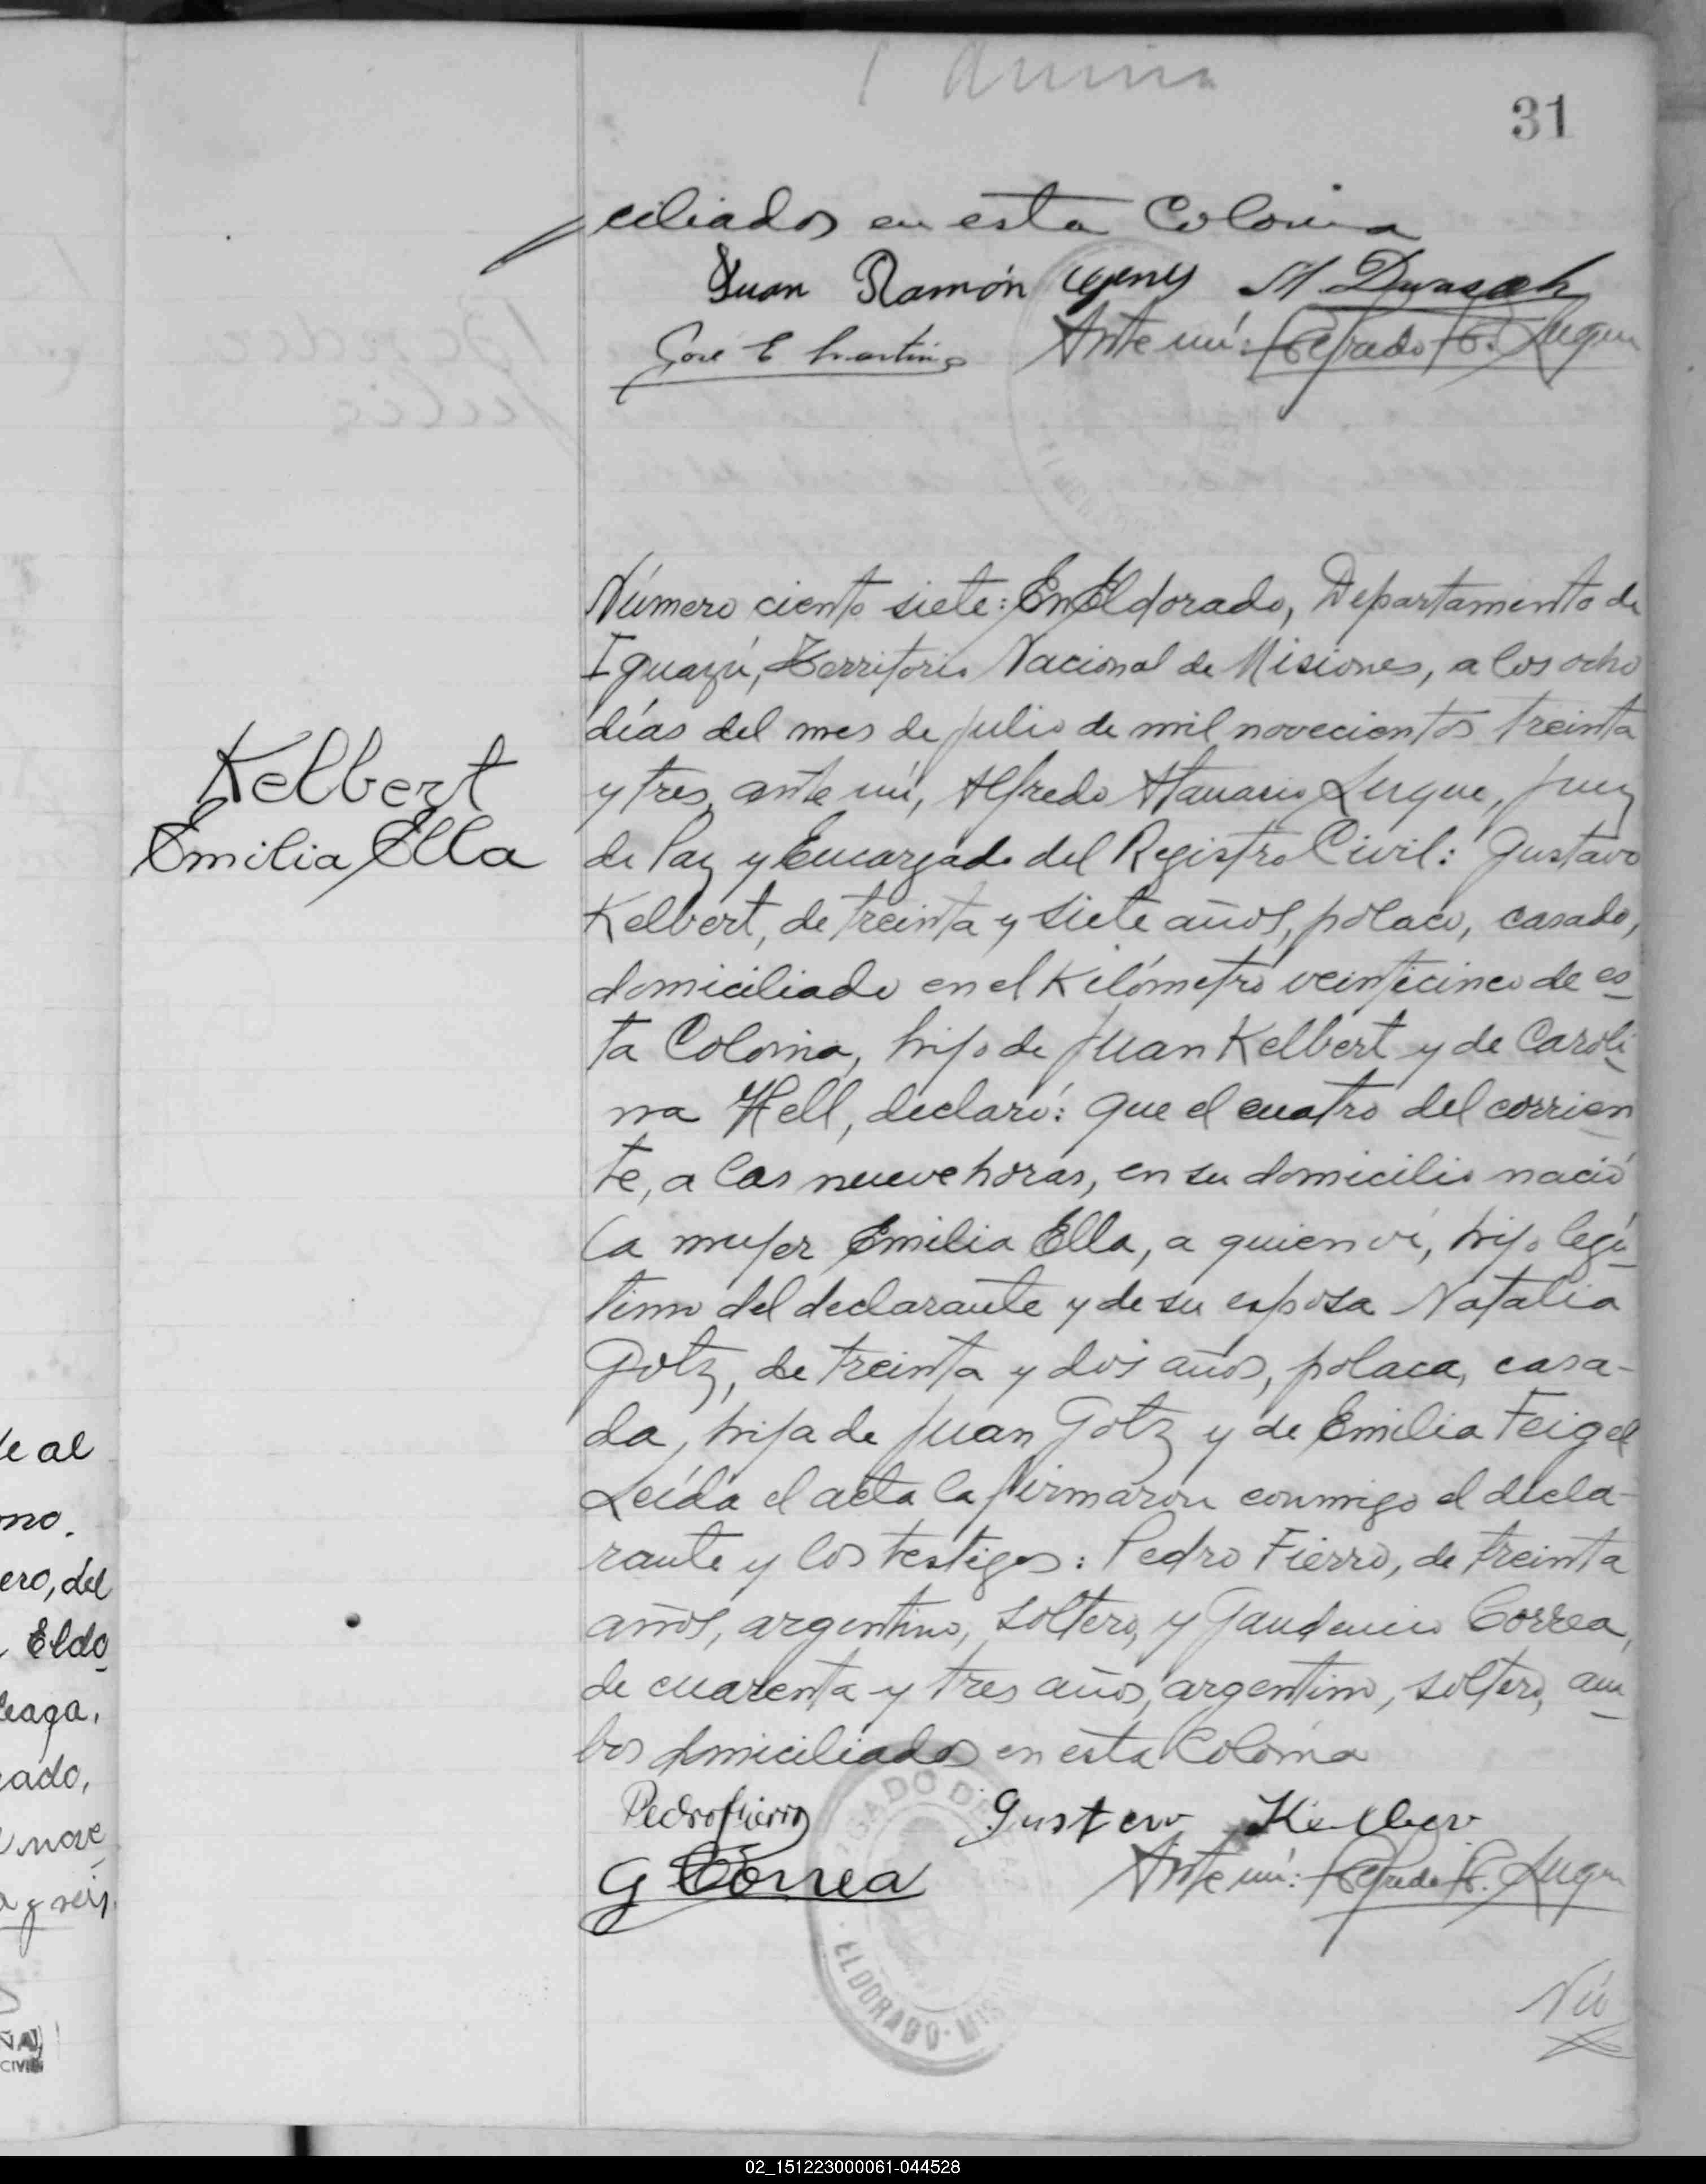 31
ciliados en esta Colonia
Juan Ramón
José E Martinez Ante mí: Alfredo A. Luque
Número ciento siete: En Eldorado, Departamento de
Iguazú, Territorio Nacional de Misiones, a los ocho
días del mes de julio de mil novecientos treinta
y tres, ante mí, Alfredo Atanasio Luque, Juez
de Paz y Encargado del Registro Civil: Gustavo
Kelbert, de treinta y siete años, polaco, casado,
Kelbert
Emilia Ella
domiciliado en el Kilómetro veinticinco de es-
ta Colonia, hijo de Juan Kelbert y de Caroli-
na Hell, declaró: Que el cuatro del corrien-
te, a las nueve horas, en su domicilio nació
la mujer Emilia Ella, a quien ví, hijo legí-
timo del declarante y de su esposa Natalia
Gotz, de treinta y dos años, polaca, casa-
da, hija de Juan Gotz y de Emilia Feigel
Leída el acta la firmaron conmigo el decla-
rante y los testigos: Pedro Fierro, de treinta
años, argentino, soltero, y Gaudencio Correa,
de cuarenta y tres años, argentino, soltero, am-
bos domiciliados en esta Colonia
Pedro Fierro Gustav Kelber
G Correa Ante mí: Alfredo A. Luque
ELDORADO
Nú
le al
mo.
ero, del
Eldo
eaga,
ado,
nove
a y seis.
ÑA)
CIVIL
02_151223000061-044528